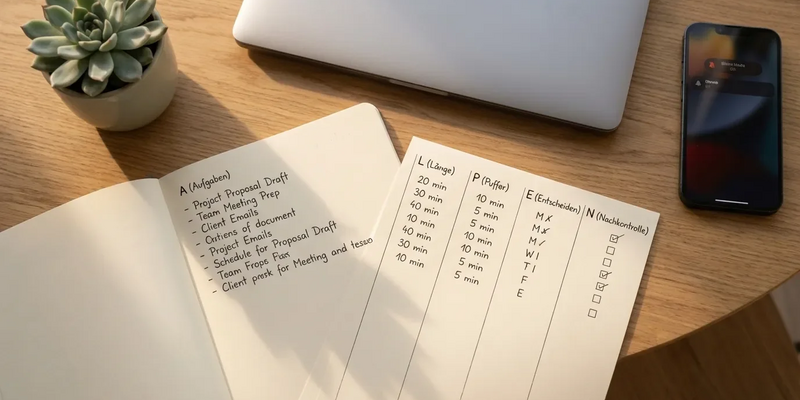 A (Aufgaben)
- Project Proposal Draft
- Team Meeting Prep
- Client Emails
- of document
- Project Emails
- Schedule for Proposal Draft
- Team Frops Fax
- Client for Meeting and
L (Länge)
20 min
30 min
40 min
10 min
40 min
30 min
10 min
P (Puffer)
10 min
5 min
5 min
10 min
10 min
5 min
5 min
E (Entscheiden)
M X
M X
M /
W I
T I
F
E
N (Nachkontrolle)